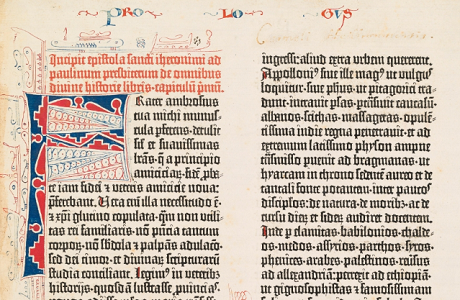 PRO LO GUS
Incipit epistola sancti iheronimi ad
paulinum presbiterum de omnibus
divine historie libris. capitulū pmū.
Rater ambrosius
tua michi munus-
cula pferens. detulit
sil et suavissimas
lrās. q̄ a principio
amiciciaꝝ. fidē pba-
te iam fidei ⁊ veteris amicicie nova:
pferebant. Vera eni illa necessitudo ē.
⁊ xpi glutino copulata. qm̄ non utili-
tas rei familiaris. nō pn̄cia tantum
corpoꝝ. nō sbdola ⁊ palpās adulacō.
sed dei timor. et divinaꝝ scripturarum
studia conciliant. Legimꝰ in veteribꝫ
historijs. quosdā lustrasse puīcias.
ingressi: aliud extra urbem quererent.
Appollonius sive ille magꝰ ut vulgꝰ
loquitur. sive phus. ut pitagorici tra-
dunt. intravit psas. ptrāsivit caucasū.
albanos. scithas. massagetas. opulē-
tissima indie regna penetravit: et ad
extremum latissimo physon amne
tnsmisso puenit ad bragmanas. ut
hyarcam in throno sedentē aureo et de
tantali fonte potantem. inter paucos
discipulos. de natura. de moribꝫ ac de
cursu dieꝝ et sideꝝ audiret docentem.
Inde p elamitas. babilonios. chalde-
os. medos. assirios. parthos. syros.
phenices. arabes. palestinos. reversus
ad alexandriā: perrexit ad ethiopiā.
ut gignosophistas et famosissimam